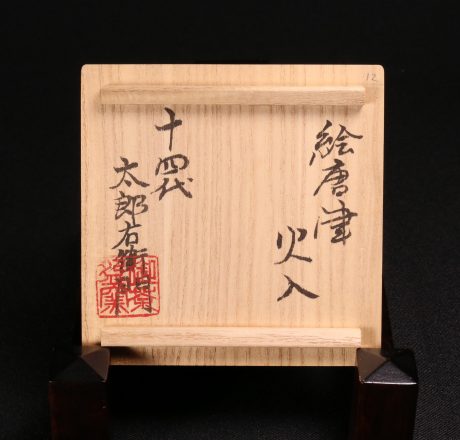 12
絵唐津
火入
十四代
太郎右衛門